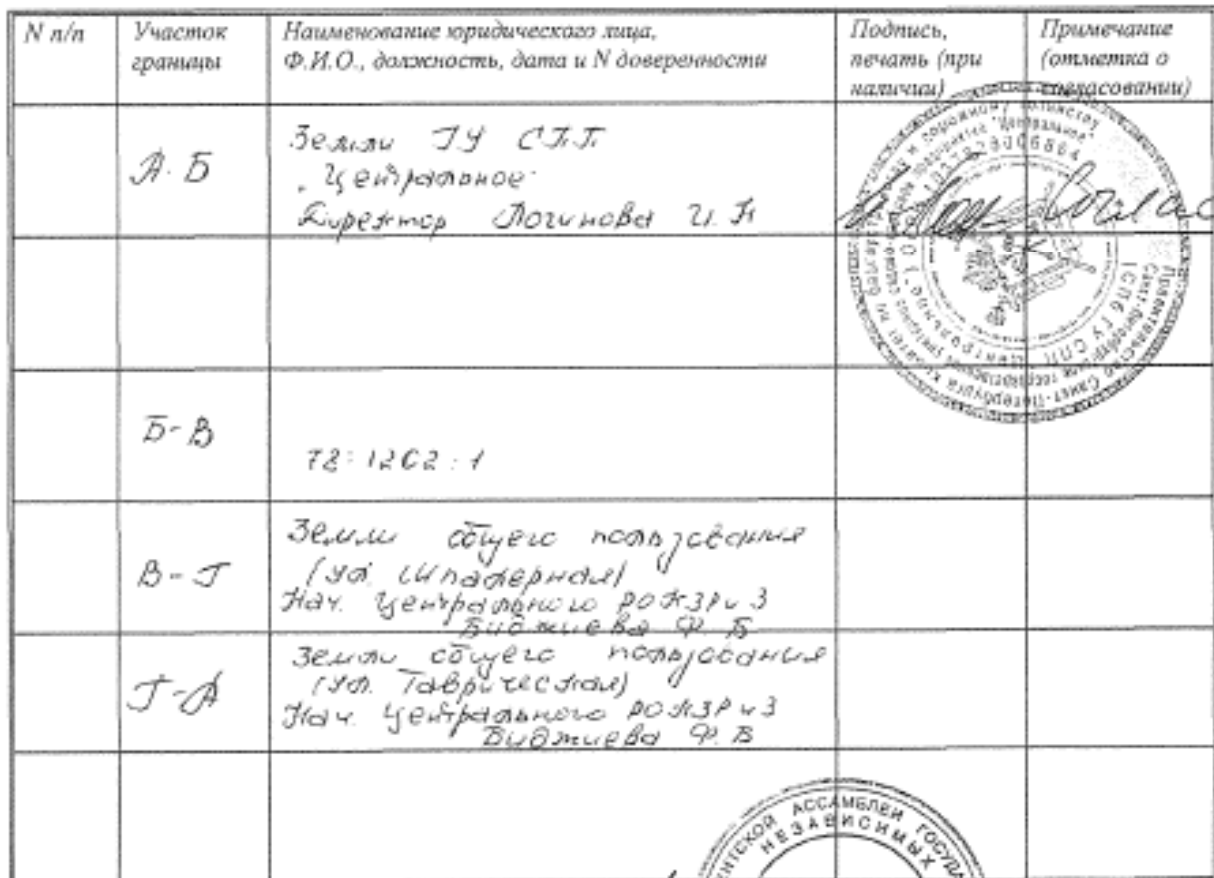 N п/п
Участок границы
Наименование юридического лица,
Ф.И.О., должность, дата и N доверенности
Подпись,
печать (при
наличии)
Примечание
(отметка о
согласовании)
А-Б
Земли ГУ СПП
"Центральное"
Директор Логинова И. К
Соглас
Б-В
78:1202:1
В-Г
Земли общего пользования
(ул. Шпалерная)
Нач. Центрального РОКЗР и З
Биджиева Ф. Б
Г-А
Земли общего пользования
(ул. Таврическая)
Нач. Центрального РОКЗР и З
Биджиева Ф. Б
Правительство Санкт-Петербурга
СПб ГУ СПП "Центральное"
1037828006864
АССАМБЛЕИ ГОСУДА
НЕЗАВИСИМЫХ